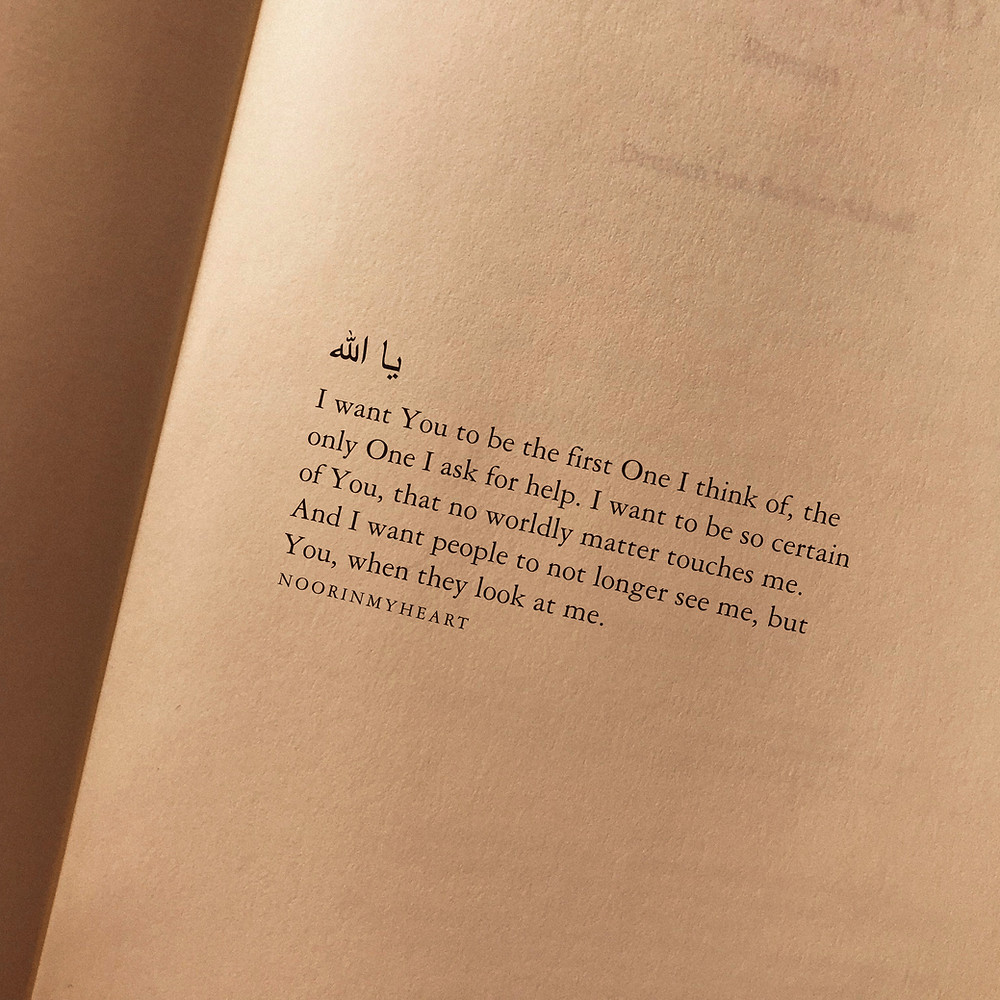 يا الله
I want You to be the first One I think of, the
only One I ask for help. I want to be so certain
of You, that no worldly matter touches me.
And I want people to not longer see me, but
You, when they look at me.
NOORINMYHEART